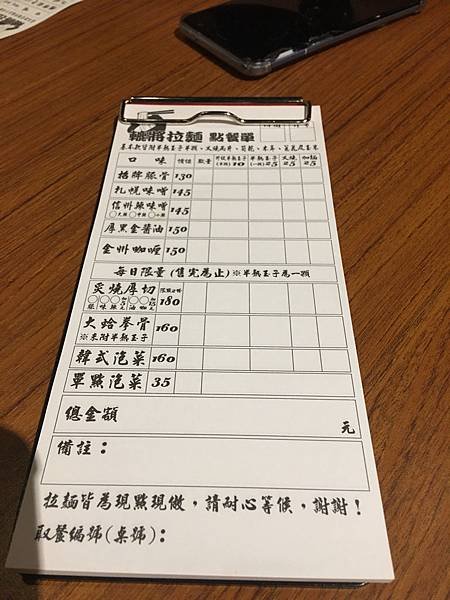 拉麵 點餐單
基本款皆附半熟玉子半顆、叉燒兩片、筍乾、木耳、蔥花及玉米
口味 價錢 數量 半熟玉子 10 半熟玉子(一顆)25 叉燒25 加麵25
招牌豚骨 130
札幌味噌 145
信州辣味噌 145
○大辣 ○中辣 ○小辣
厚黑金醬油 150
金州咖喱 150
每日限量 (售完為止) ※半熟玉子為一顆
炙燒厚切 180
大蛤拳骨 160
※未附半熟玉子
韓式泡菜 160
單點泡菜 35
總金額 元
備註：
拉麵皆為現點現做，請耐心等候，謝謝！
取餐編號(桌號)：